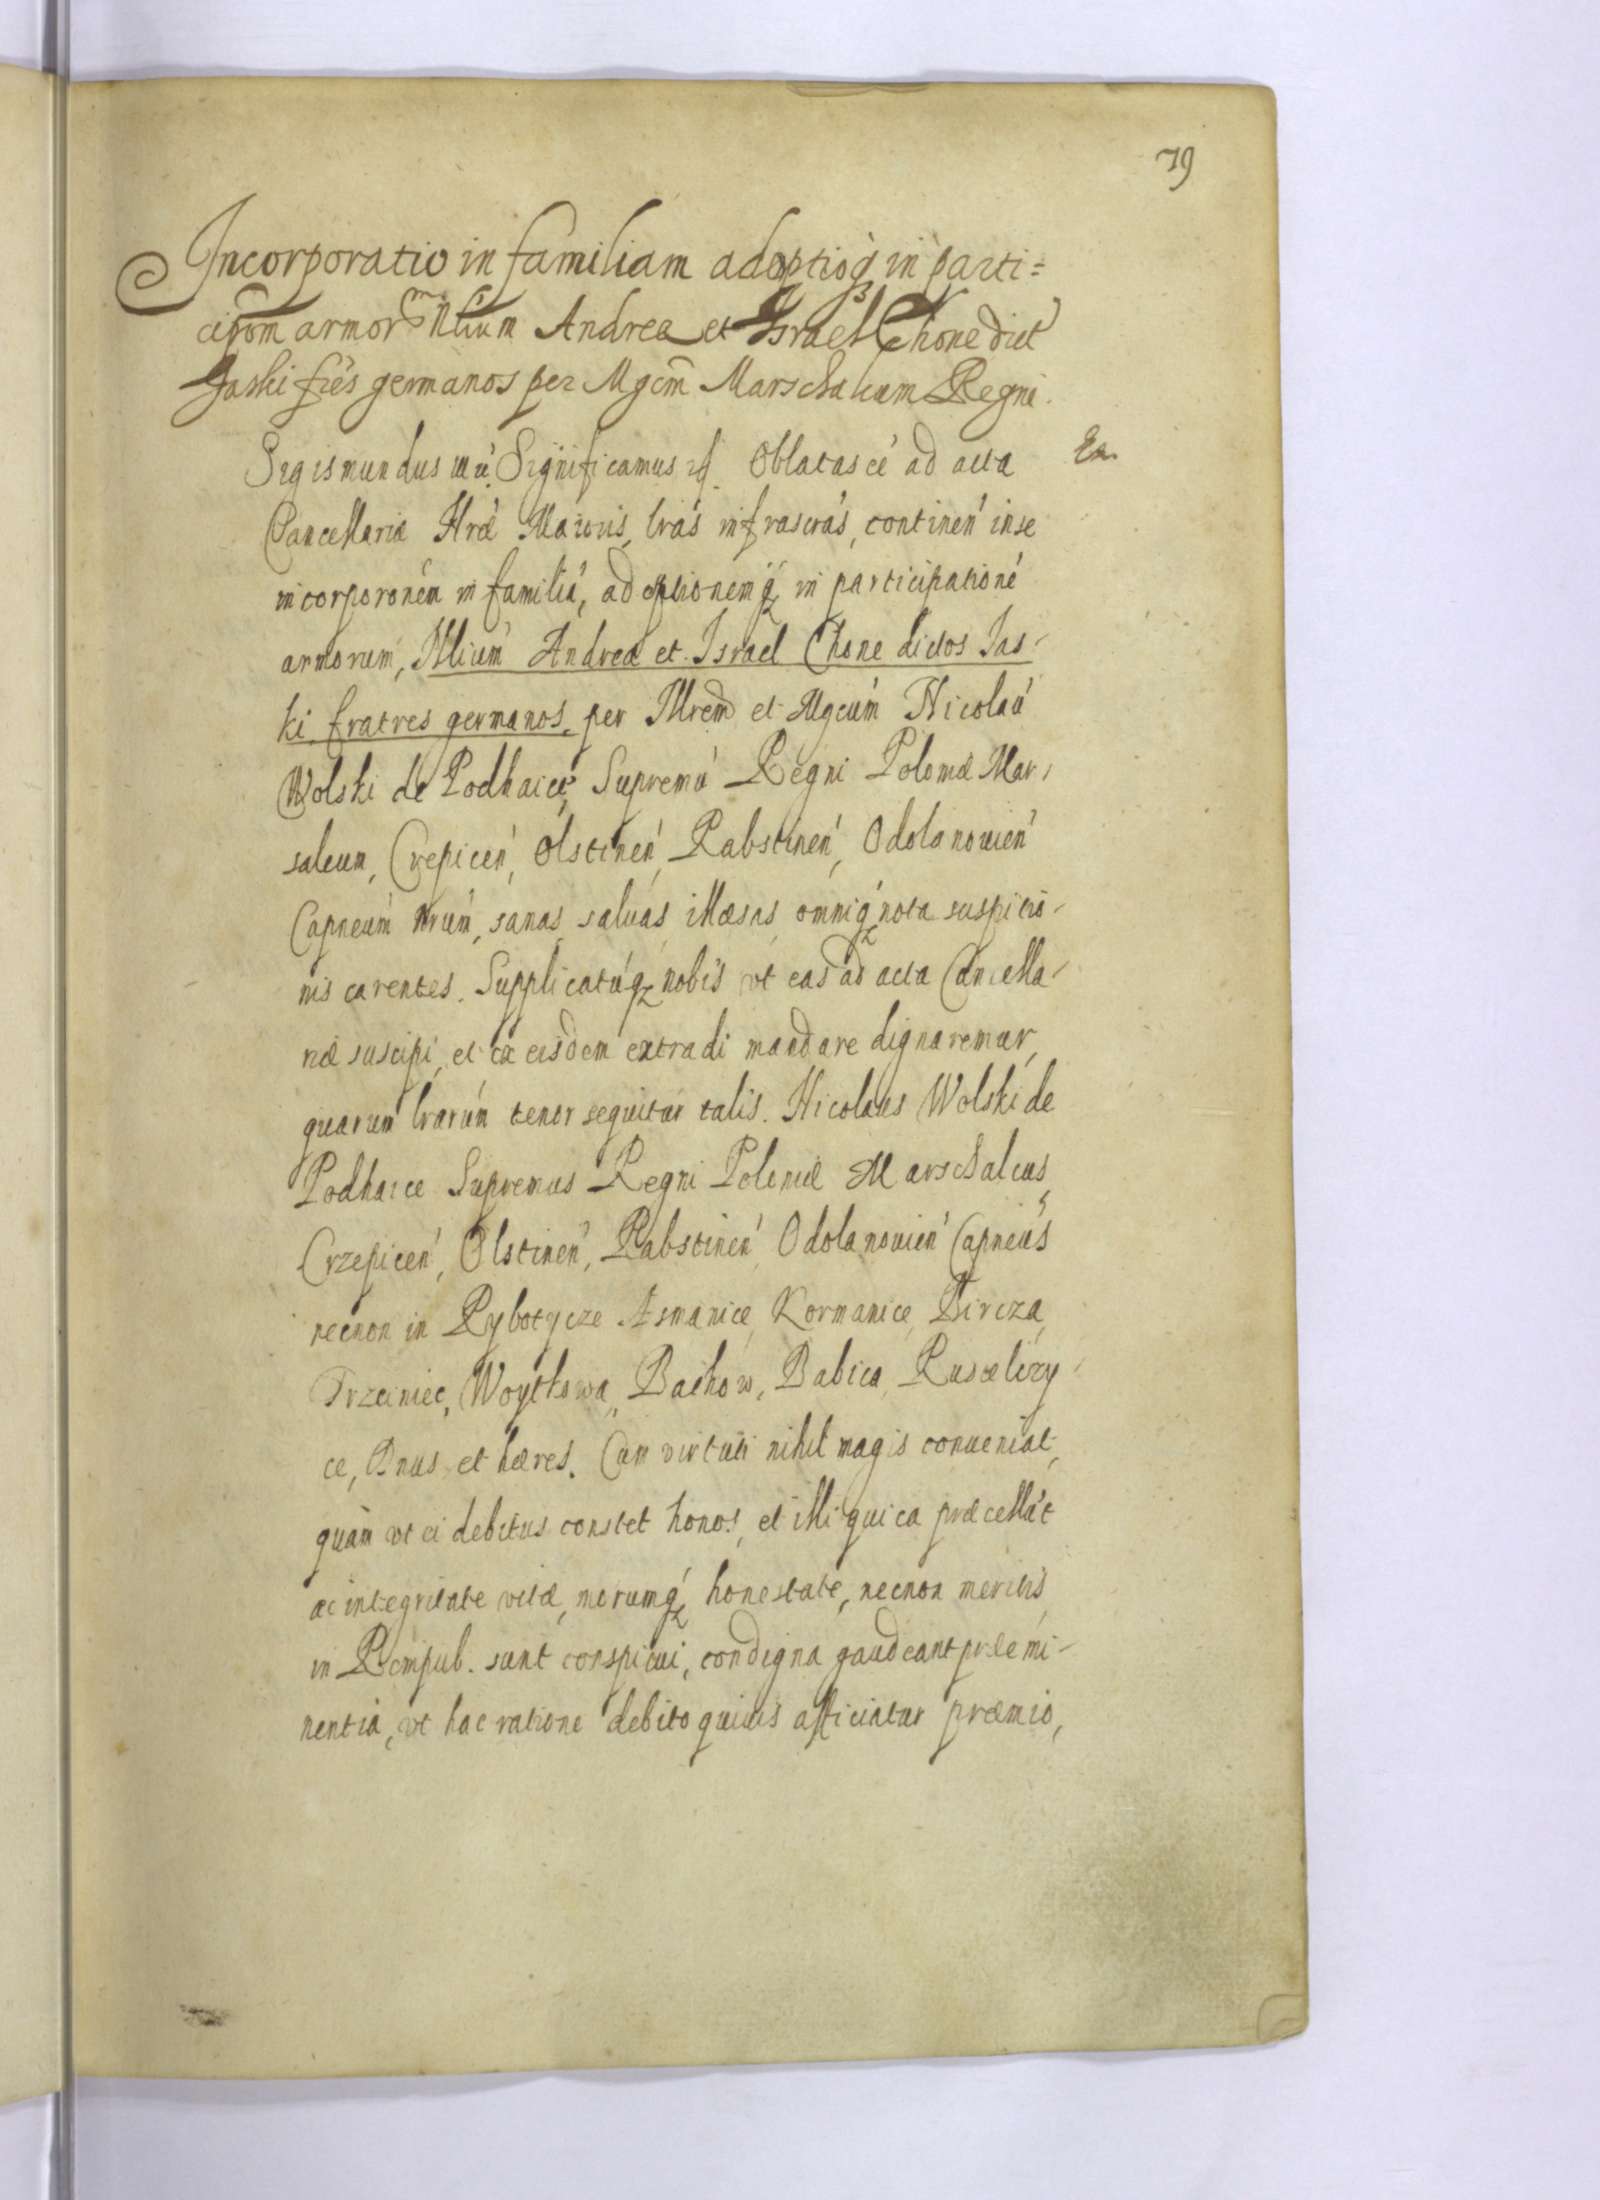 79
Incorporatio in familiam adoptioq; in parti=
cipom armorm Nlium Andrea et Israel Chone dict
Jaski fres germanos per Mgcm Marschalcum Regni.
Sigismundus Significamus Oblatas ee ad acta
Ex.
Cancellariæ Nræ Maioris, lras infrascras, continen in se
incorporonem in familia, adoptionemq; in participatione
armorum, Nlium Andrea et Israel Chone dictos Jas-
ki, fratres germanos, per Illrem et Mgcum Nicolau
Wolski de Podhaice, Supremu Regni Poloniæ Mar-
salcum, Crepicen, Olstinen, Rabstinen, Odolanouien
Capneum nrum, sanas saluas illæsas omniq; nota suspitio-
nis carentes. Supplicatuq; nobis vt eas ad acta Cancella-
riæ suscipi, et ex eisdem extradi mandare dignaremur,
quarum lrarum tenor sequitur talis. Nicolaus Wolski de
Podhaice Supremus Regni Poloniæ Marschalcus,
Crzepicen, Olstinen, Rabstinen, Odolanouien Capneus
necnon in Rybotycze Asmanice, Kormanice, Bircza,
Trzciniec, Woytkowa, Bachow, Babica, Ruscelczy-
ce, Dnus et hæres. Cum virtuti nihil magis conueniat,
quàm vt ei debitus constet honos, et illi qui ea præcellut
ac integritate vitæ, morumq; honestate, necnon meritis
in Rempub. sunt conspicui, condigna gaudeant præemi-
nentia, vt hac ratione debito quiuis afficiatur præmio,